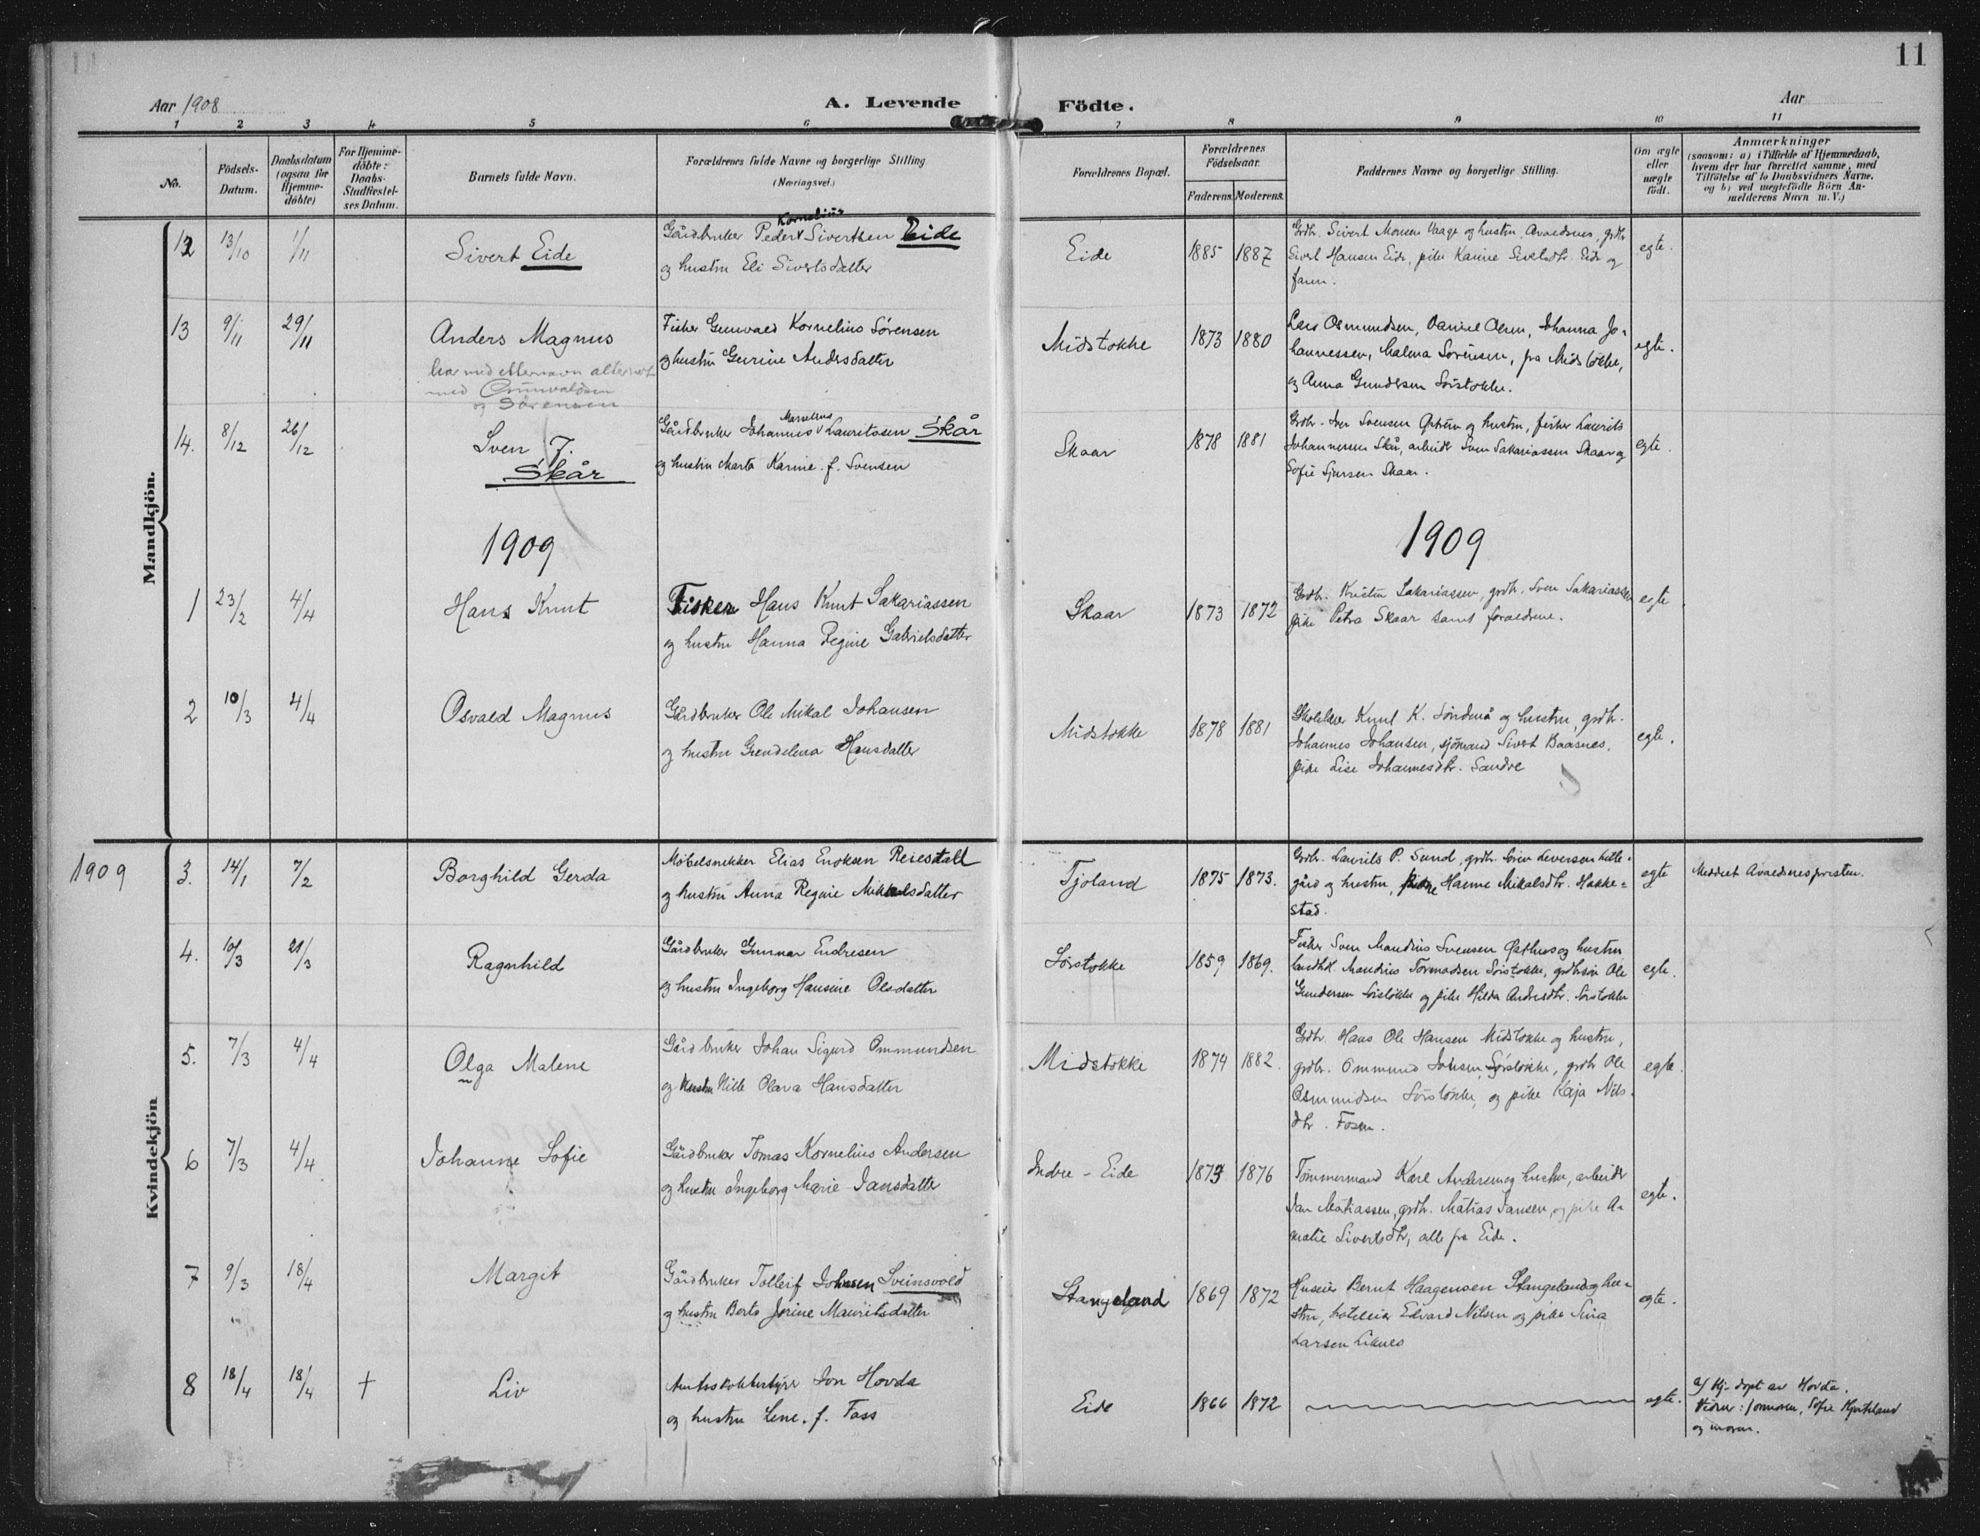 11
Aar 1908
A. Levende Födte.
Aar
1 2 3 4 5 6 7 8 9 10 11
No.
Födsels-Datum.
Daabsdatum (ogsaa for Hjemme-döbte)
For Hjemme-döbte: Daabs-Stadfæstel-ses Datum.
Barnets fulde Navn.
Forældrenes fulde Navne og borgerlige Stilling (Næringsvei.)
Forældrenes Bopæl.
Forældrenes Födselsaar.
Faderens. Moderens.
Faddernes Navne og borgerlige Stilling.
Om ægte eller uægte födt.
Anmærkninger
(saasom: a) i Tilfælde af Hjemmedaab,
hvem der har forrettet samme, med
Tilföielse af to Daabsvidners Navne.
og b) ved uægtefödte Börn An-
melderens Navn m. V.)
Mandkjön.
12 13/10 1/11 Sivert Eide
Gårdbruker Peder Kornelius Sivertsen Eide
og hustru Eli Sivertsdatter
Eide 1885 1887
Grdb. Sivert Monsen Vaage og hustru, Avaldsnes, grdb.
Sivert Hansen Eide, pike Karine Sivertsdtr. Eide og
faren.
egte.
13 9/11 29/11 Anders Magnus
har med etternavn alternert
med Gunvaldsen
og Sørensen
Fisker Gunvald Kornelius Sørensen
og hustru Gurine Andersdatter
Midstokke 1873 1880
Lars Osmundsen, Daniel Olsen, Johanna Jo-
hannessen, Malena Sørensen, fra Midstokke,
og Anna Gundersen Sørstokke.
egte.
14. 8/12 26/12 Sven J.
Skår
Gårdbruker Johannes Marselius Lauritssen Skår
og hustru Marta Karine f. Svensen
Skaar 1878 1881
Grdb. Iver Svensen og hustru, fisker Laurits
Johannessen Skår, arbeider Sven Sakariassen Skaar og
Sofie Sjursen Skaar.
egte.
1909 1909
1 23/2 4/4 Hans Knut
Fisker Hans Knut Sakariassen
og hustru Hanna Regine Gabrielsdatter
Skaar 1873 1872
Grdb. Kristen Sakariassen, grdb. Sven Sakariassen
pike Petra Skaar samt forældrene.
egte
2 10/3 4/4 Osvald Magnus
Gårdbruker Ole Mikal Johansen
og hustru Grendelena Hansdatter
Midstokke 1878 1881
Skolelærer Knut K. Søndenå og hustru, grdb.
Johannes Johansen, sjømand Sivert Baasnes,
pike Lise Johannesdtr. Sandve
egte.
Kvindekjön
1909
3. 14/1 7/2 Borghild Gerda
Møbelsnekker Elias Enoksen Reiestad
og hustru Anna Regine Mikkalsdatter
Tjoland 1875 1873.
Grdb. Laurits P. Sund, grdb. Sören Seversen
gård og hustru, Hanne Mikalsdtr. Hakke-
stad.
egte
Meddelt Avaldsnespresten.
4. 10/3 21/3 Ragnhild
Gårdbruker Gunnar Endresen
og hustru Ingeborg Hansine Olsdatter
Sørstokke 1859 1869.
Fisker Sven Mandius Svensen Østhus og hustru
landhdl. Mandius Tormodsen Sørstokke, grdbrsøn Ole
Gundersen Sørstokke og pike Hilda Andersdtr. Sørstokke
egte.
5. 7/3 4/4 Olga Malene
Gårdbruker Johan Sigurd Ommundsen
og hustru Nille Olava Hansdatter
Midstokke 1874 1882.
Grdb. Hans Ole Hansen Midstokke og hustru,
grdb. Ommund Johsen, Sørstokke, grdb Ole
Osmundsen Sørstokke, og pike Kaja Nils-
dtr. Fosen.
egte.
6 7/3 4/4 Johanne Sofie
Gårdbruker Tomas Kornelius Andersen
og hustru Ingeborg Marie Jansdatter
Indre-Eide 1873 1876
Tømmermand Karl Andersen og hustru, arbeider
Jan Matiassen, grdb. Matias Jansen, og pike A-
malie Sivertsdtr, alle fra Eide.
egte.
7 9/3 18/4 Margit
Gårdbruker Tolleif Johnsen Sveinsvold
og hustru Berta Jorine Mauritsdatter
Stangeland 1869 1872
Huseier Bernt Haagensen Stangeland og hu-
stru, hoteleier Edvard Nilsen og pike Sina
Larsen Liknes
egte.
8 18/4 18/4 † Liv
Amtsskolebestyrer Jon Hovda
og hustru Lene f. Foss
Eide 1866 1872
egte.
a/ Hj-døpt av Hovda.
Vidner: jormoren, Sofie Hjorteland
og moren.